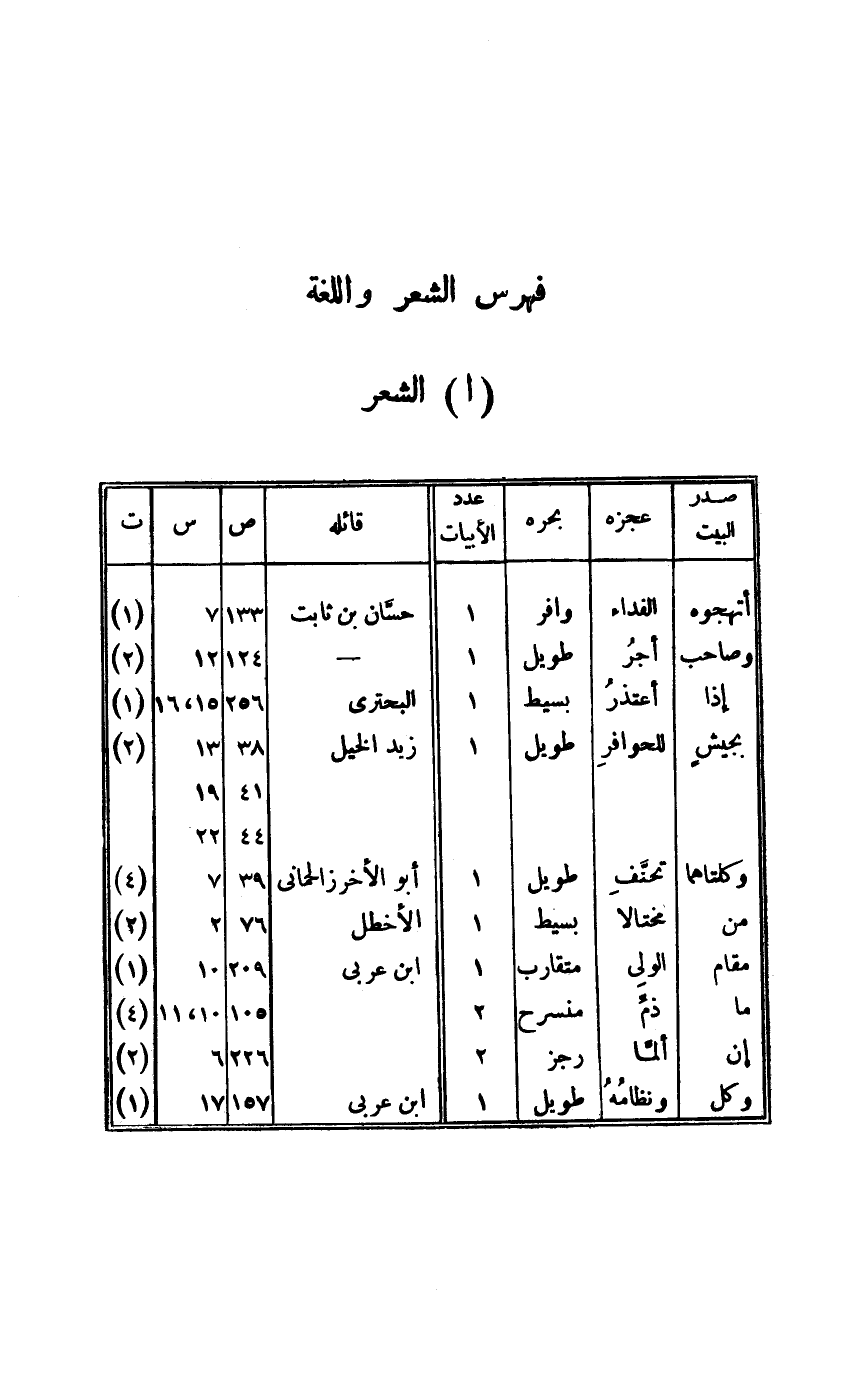 فهرس الشعر واللغة
(ا) الشعر
صدر البيت عجزه بحره عدد الأبيات قائله ص س ت
أتهجوه الفداء وافر ١ حسَّان بن ثابت ١٣٣ ٧ (١)
وصاحب أجرُ طويل ١ — ١٢٤ ١٢ (٢)
إذا أعتذرُ بسيط ١ البحترى ٢٥٦ ١٥،١٦ (١)
بجيشٍ للحوافرِ طويل ١ زيد الخيل ٣٨ ١٣ (٢)
٤١ ١٩
٤٤ ٢٢
وكلتاهما تحنَّفِ طويل ١ أبو الأخرز الحمانى ٣٩ ٧ (٤)
من مختالا بسيط ١ الأخطل ٧٦ ٢ (٢)
مقام الولي متقارب ١ ابن عربى ٢٠٩ ١٠ (١)
ما ذمَّ منسرح ٢ ١٠٥ ١٠،١١ (٤)
إن ألمَّا رجز ٢ ٢٢٦ ٦ (٢)
وكل ونظامُهُ طويل ١ ابن عربى ١٥٧ ١٧ (١)